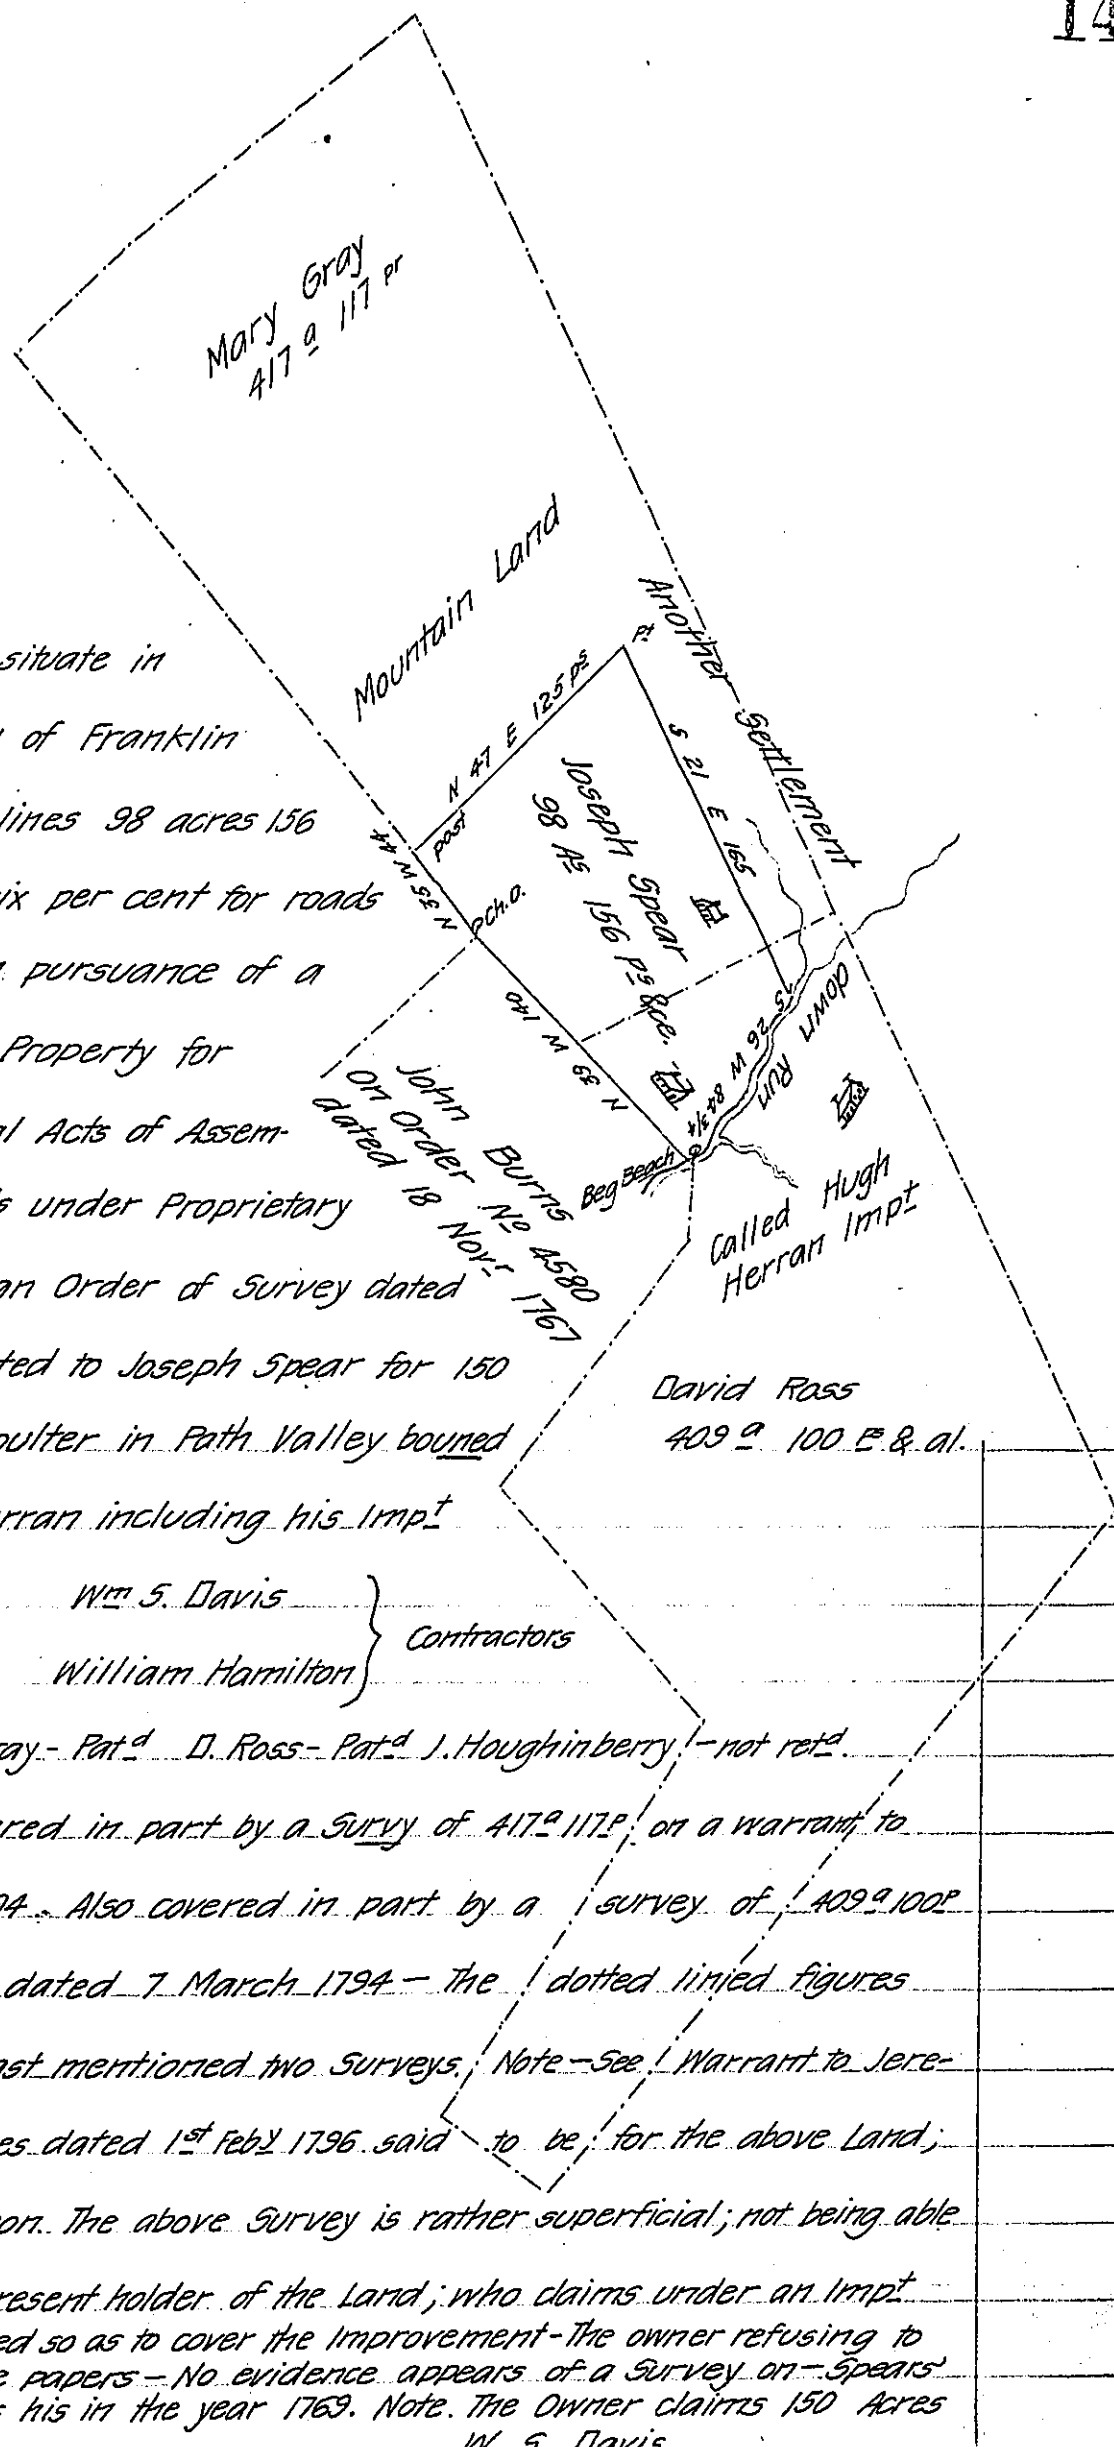 14
Mary Gray
417 a 117 pr
Mountain Land
Another Settlement
Pt
N 47 E 125 ps
post
S 21 E 165
Joseph Spear
98 As 156 Ps &ce.
N 35 W 44
P Ch.O.
N 39 W 140
S 26 W 84 3/4
down Run
Beg Beach
John Burns
on Order No 4580
dated 18 Novr 1767
Called Hugh
Herran Impt
David Ross
409 a 100 Ps & al.
situate in
of Franklin
lines 98 acres 156
ix per cent for roads
pursuance of a
Property for
al Acts of Assem-
s under Proprietary
an Order of Survey dated
ted to Joseph Spear for 150
oulter in Path Valley bouned
rran including his Impt
Wm S. Davis
William Hamilton
Contractors
ray - Patd D. Ross - Patd J. Houghinberry - not retd.
ered in part by a Survy of 417a 117P on a warrant to
94. Also covered in part by a survey of 409a 100P
dated 7 March 1794 - The dotted linied figures
ast mentioned two Surveys. Note - See Warrant to Jere-
es dated 1st Feby 1796 said to be for the above Land;
on. The above Survey is rather superficial; not being able
resent holder of the Land; who claims under an Impt
ed so as to cover the Improvement - The owner refusing to
e papers - No evidence appears of a Survey on - Spears'
s his in the year 1769. Note. The Owner claims 150 Acres
W. S. Davis